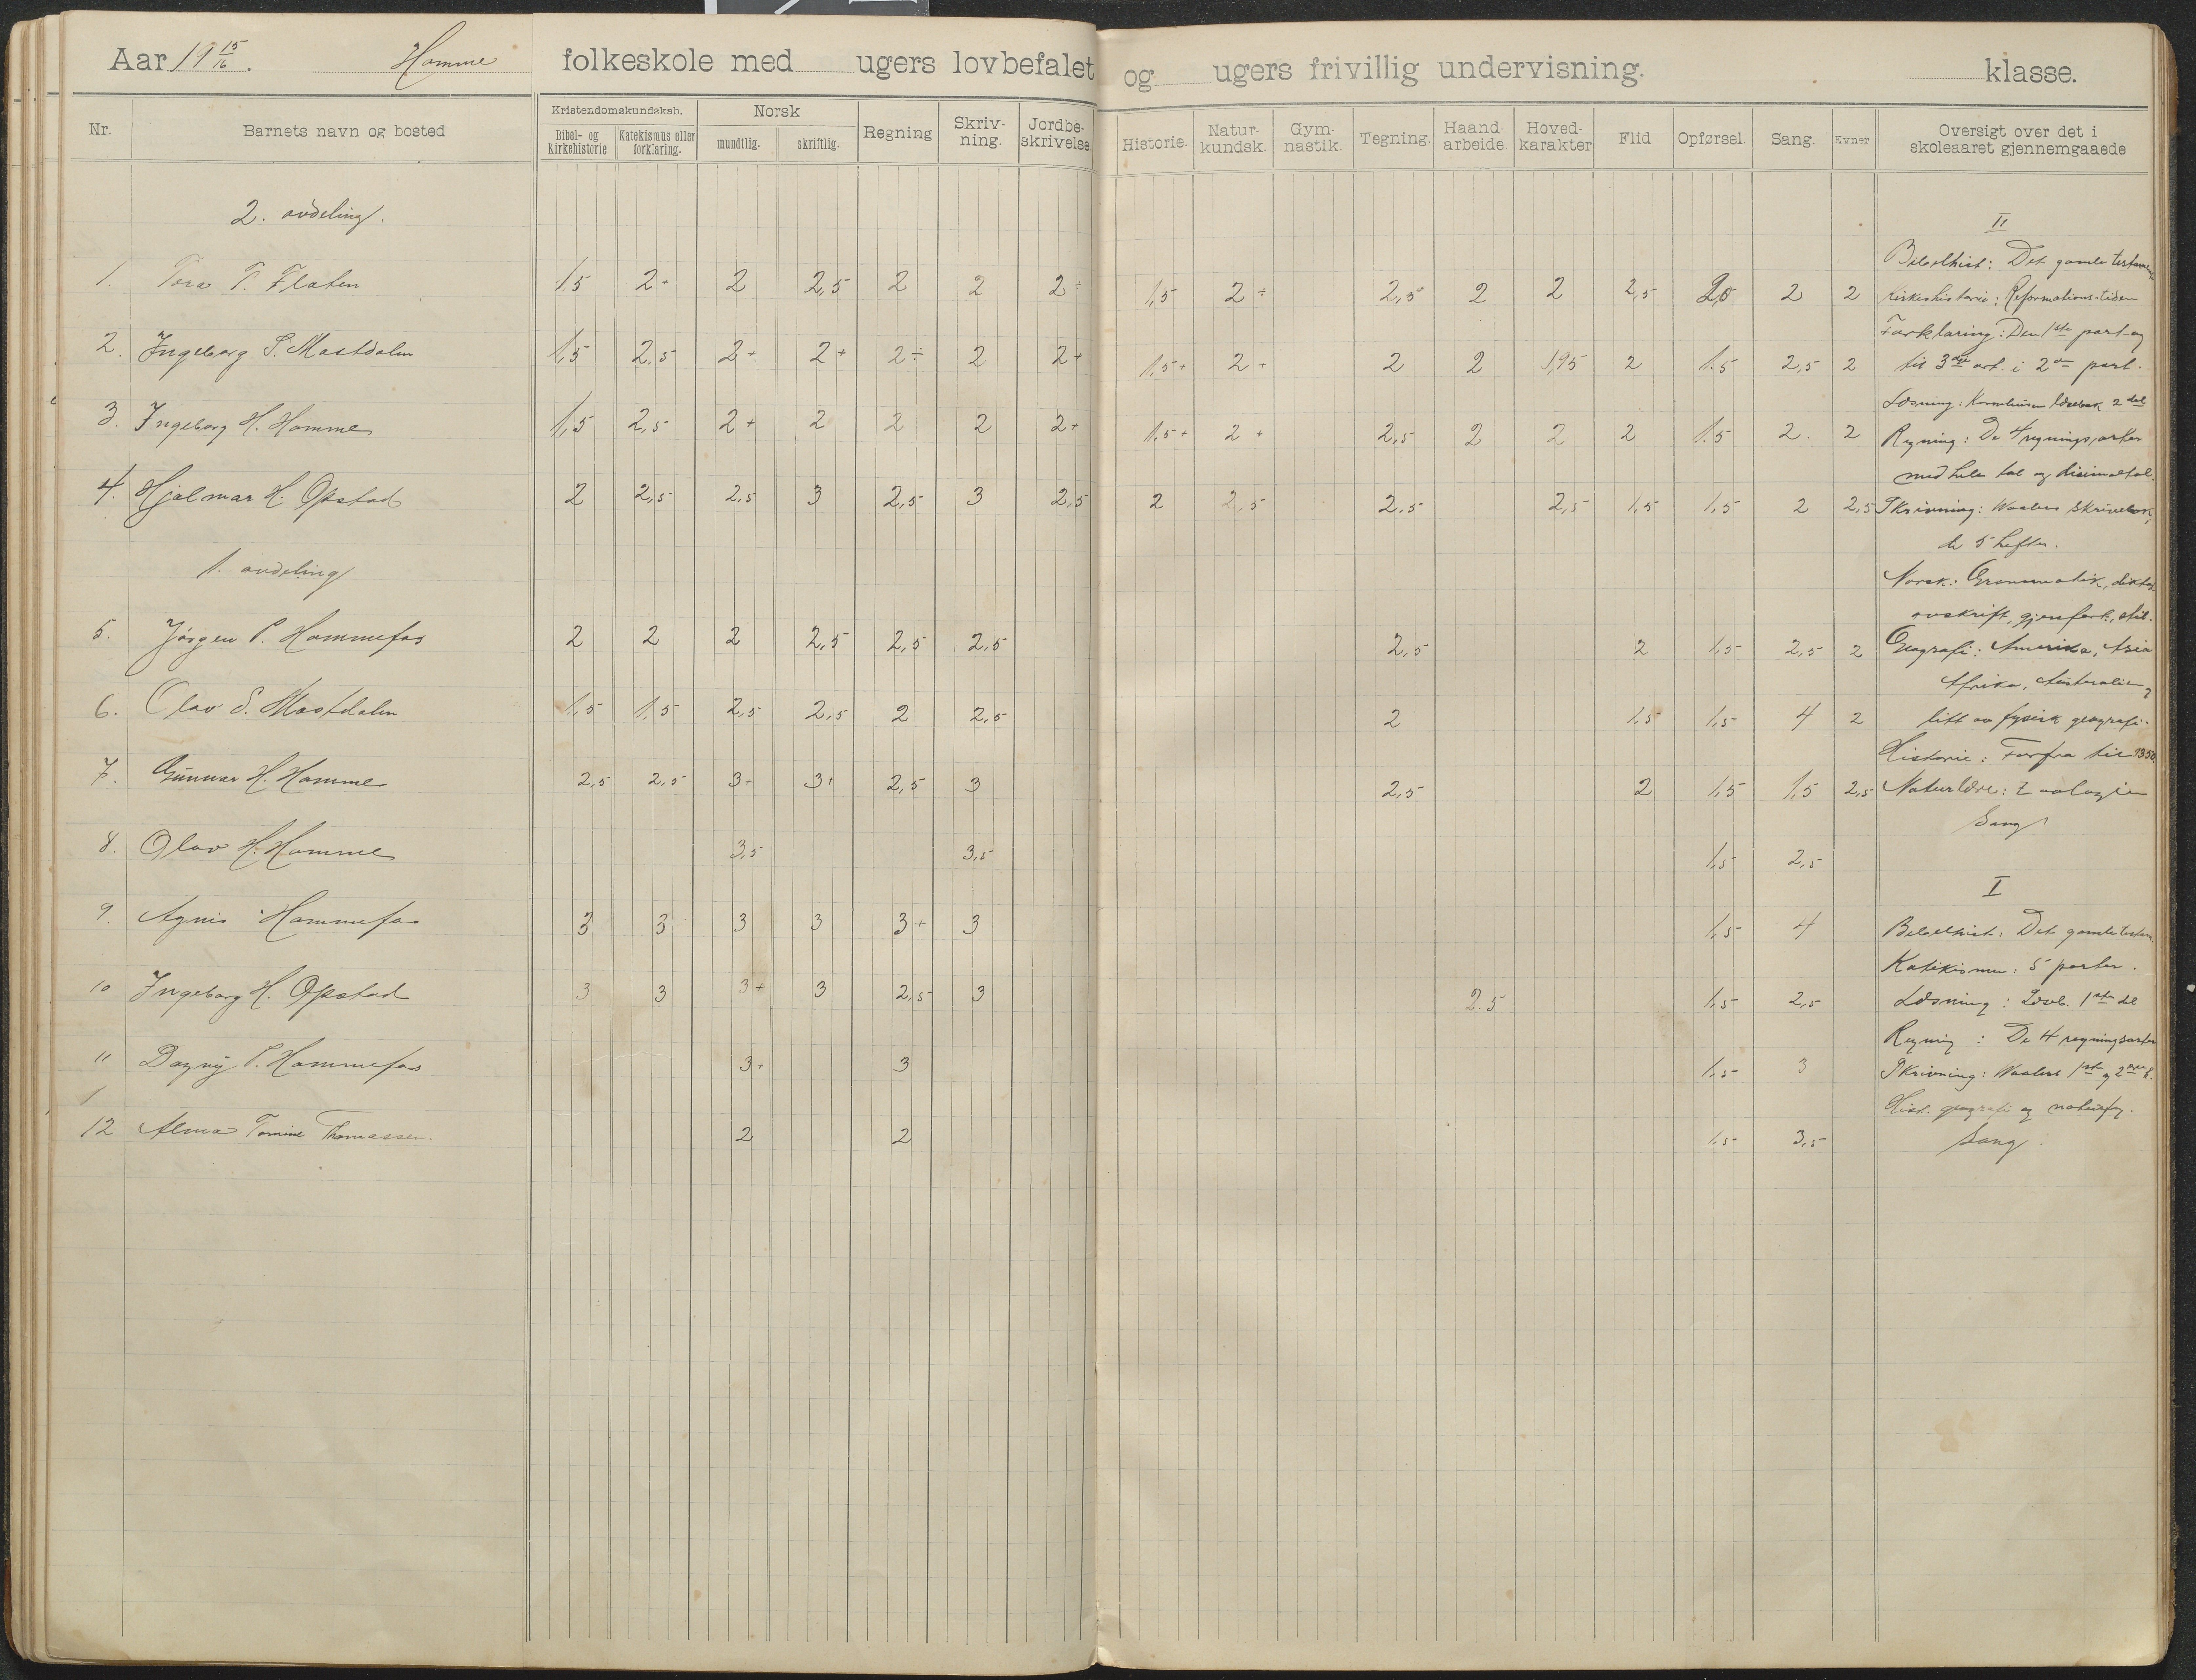 Aar 19 15/16. Homme folkeskole med ugers lovbefalet og ugers frivillig undervisning. klasse.
Nr. Barnets navn og bosted Kristendomskundskab. Bibel- og Kirkehistorie Katekismus eller forklaring. Norsk mundtlig. skriftlig. Regning Skriv-ning. Jordbe-skrivelse Historie. Natur-kundsk. Gym-nastik. Tegning. Haand-arbeide. Hoved-karakter Flid Opførsel. Sang. Evner Oversigt over det i skoleaaret gjennemgaaede
2. avdeling. II
Bibelhist: Det gamle testamen
1. Tora T. Flaten 1,5 2+ 2 2,5 2 2 2÷ 1,5 2÷ 2,5 2 2 2,5 2 2 Kirkehistorie: Reformations-tiden
Forklaring: Den 1ste part og
2. Ingeborg S. Mostdalen 1,5 2,5 2+ 2+ 2÷ 2 2+ 1,5+ 2+ 2 2 1,95 2 1.5 2,5 2 til 3die art. i 2den part.
Læsning: læsebok 2 del
3. Ingeborg H. Homme 1,5 2,5 2+ 2 2 2 2+ 1.5+ 2+ 2,5 2 2 2 1.5 2. 2 Regning: De 4 regningsarter
med hele tal og disimaltal.
4. Hjalmar H. Opstad 2 2,5 2,5 3 2,5 3 2,5 2 2,5 2.5 2,5 1,5 1,5 2 2,5 Skrivning: Waalers Skrivebok,
de 5 hefter.
1. avdeling Norsk: Grammatik, diktat
avskrift, gjenfort., stil.
5. Jörgen P. Hommefos 2 2 2 2,5 2,5 2,5 2,5 2 1,5 2,5 2 Geografi: Amerika, Asia
Afrika, Australien
6. Olav S. Mostdalen 1,5 1,5 2,5 2,5 2 2,5 2 1,5 1,5 4 2 litt av fysisk geografi.
Historie: Forfra til 1350.
7. Gunnar H. Homme 2,5 2,5 3+ 3+ 2,5 3 2,5 2 1,5 1,5 2,5 Naturlære: Zoologien
Sang
8. Olav H. Homme 3,5 3,5 1,5 2,5
I
9. Agnes Hommefos 3 3 3 3 3+ 3 1,5 4 Bibelhist.: Det gamle testam.
Katikismus: 5 parter.
10 Ingeborg H. Opstad 3 3 3+ 3 2,5 3 2.5 1,5 2,5 Læsning: Læseb. 1ste del
Regning: De 4 regningsarter
11 Dagny P. Hommefos 3+ 3 1,5 3 Skrivning: Waalers 1ste og 2det h.
Hist. geografi og naturfag.
12 Alma Tomine Thomassen. 2 2 1,5 3,5 Sang.